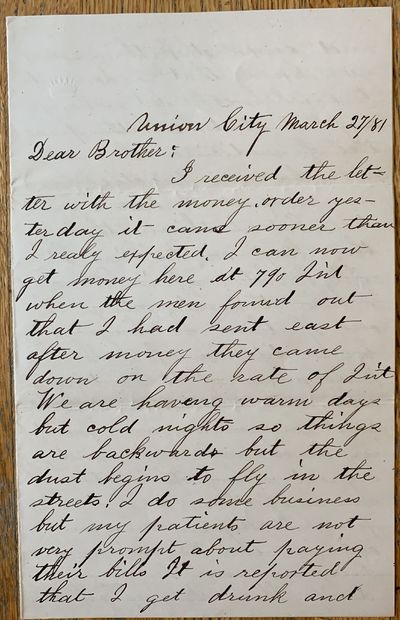 Union City March 27/81
Dear Brother:
I received the let=
ter with the money order yes-
terday it came sooner than
I realy expected. I can now
get money here at 7% Int
when the men found out
that I had sent east
after money they came
down on the rate of Int
We are having warm days
but cold nights so things
are backwards but the
dust begins to fly in the
streets. I do some business
but my patients are not
very prompt about paying
their bills It is reported
that I get drunk and